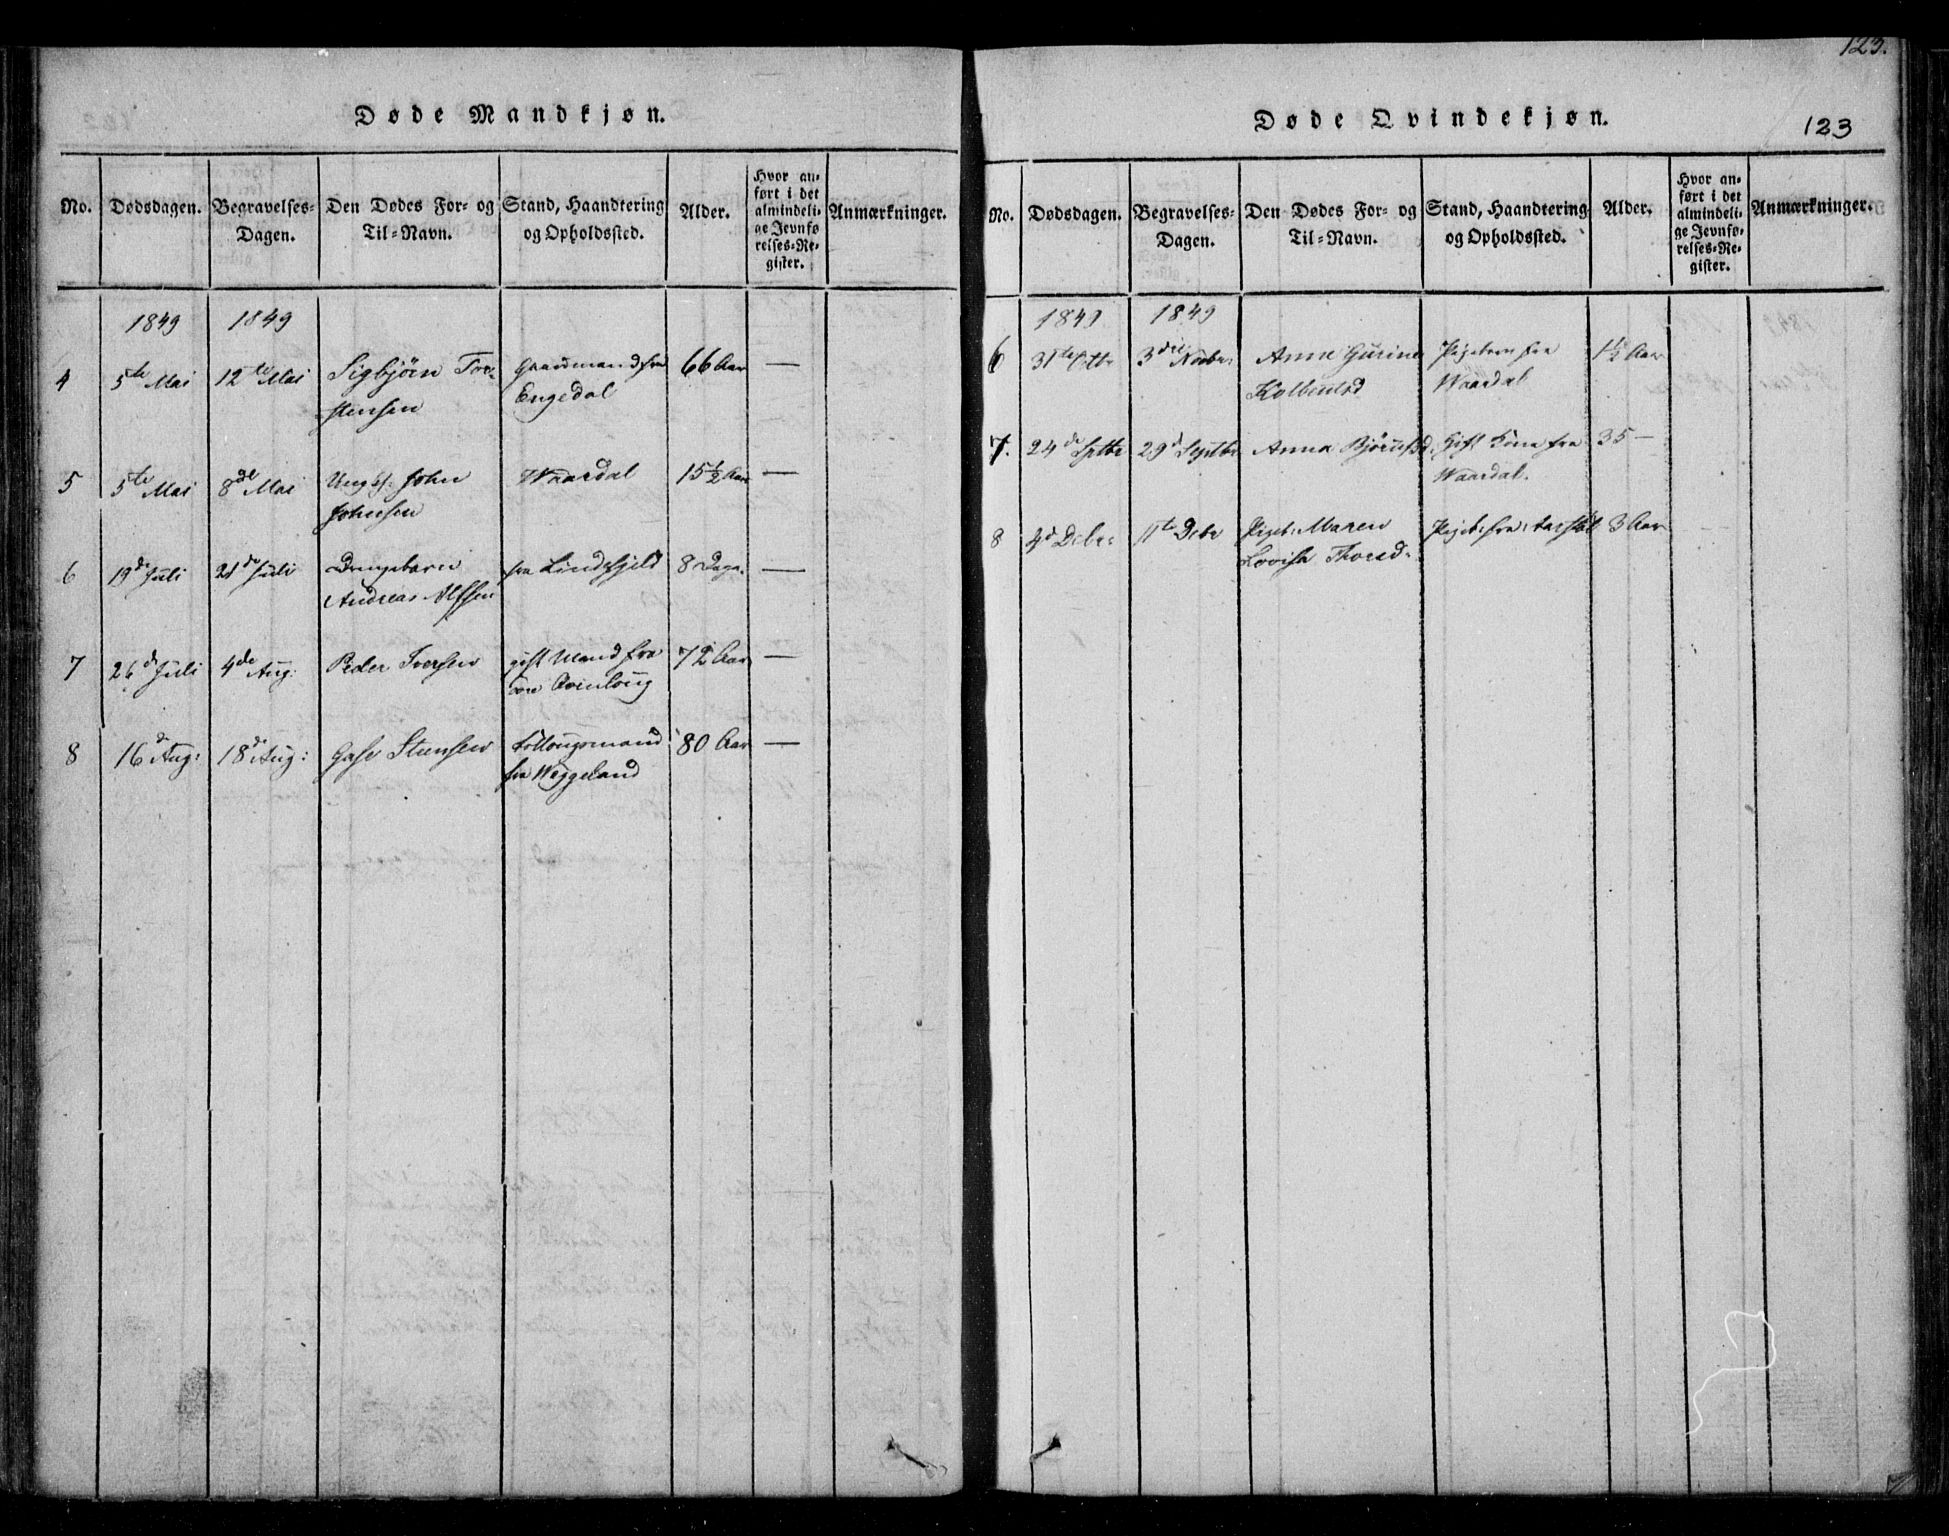 Døde Mandkjøn.
No. Dødsdagen. Begravelses-Dagen. Den Dødes For- og Til-Navn. Stand, Haandtering og Opholdssted. Alder. Hvor anført i det almindelige Jevnførelses-Register. Anmærkninger.
1849 1849
4 5te Mai 12te Mai Sigbjørn Tor- Gaardmand fra 66 Aar —
stensen Engedal
5 5te Mai 8de Mai Ungk. John Waardal 15½ Aar —
Johnsen
6 19de Juli 21de Juli Drengebarn fra Lindefjeld 8 Dage —
Andreas Alfsen
7 26d Juli 4de Aug: Peder Iversen gift Mand fra 72 Aar —
8 16de Aug: 18de Aug: Stensen 80 Aar —
fra Waggeland
123.
Døde Qvindekjøn.
123
No. Dødsdagen. Begravelses-Dagen. Den Dødes For- og Til-Navn. Stand, Haandtering og Opholdssted. Alder. Hvor anført i det almindelige Jevnførelses-Register. Anmærkninger.
1849 1849
6 31te Octbr 3die Novbr: Anne Gurine Pigebarn fra 1½ Aar
Waardal
7. 24de Septbr 29d Septbr Anna Gift Kone fra 35 —
Waardal.
8 4d Decbr: 11te Decbr Pigeb: Maren Pigeb: fra 3 Aar
Lovise Thorsd: